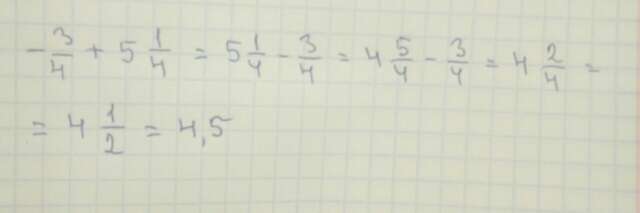 -3/4 + 5 1/4 = 5 1/4 - 3/4 = 4 5/4 - 3/4 = 4 2/4 =
= 4 1/2 = 4,5